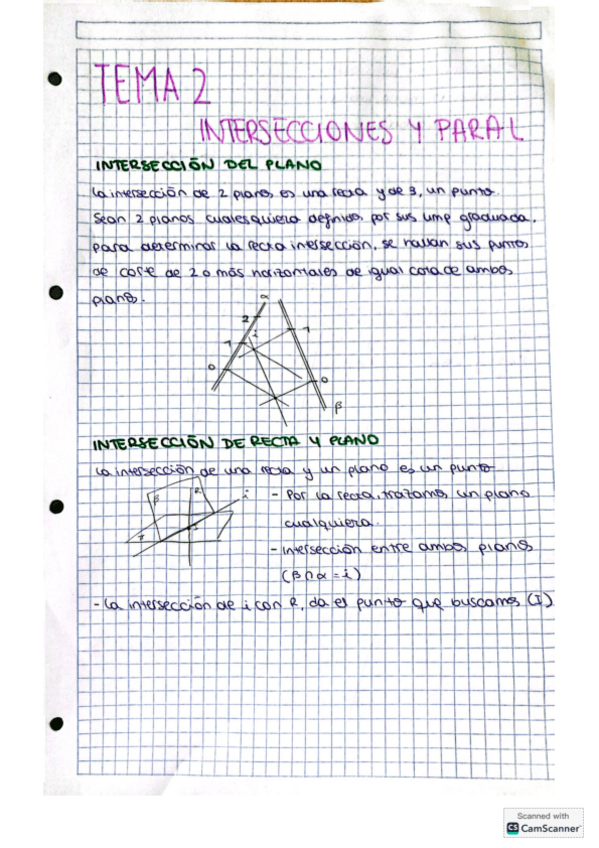 TEMA 2
INTERSECCIONES Y PARAL
INTERSECCIÓN DEL PLANO
La intersección de 2 planos es una recta y de 3, un punto.
Sean 2 planos cualesquiera definidos por sus lmp graduada,
para determinar la recta intersección, se hallan sus puntos
de corte de 2 o más horizontales de igual cota de ambos
planos.
α
2
i
1
1
0
0
β
INTERSECCIÓN DE RECTA Y PLANO
La intersección de una recta y un plano es un punto
β
R
i
- Por la recta, trazamos un plano
cualquiera.
- Intersección entre ambos planos
(β∩α = i)
- La intersección de i con R, da el punto que buscamos (I)
Scanned with
CS CamScanner